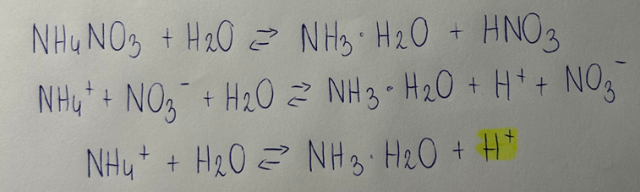 NH4NO3 + H2O ⇌ NH3·H2O + HNO3
NH4⁺ + NO3⁻ + H2O ⇌ NH3·H2O + H⁺ + NO3⁻
NH4⁺ + H2O ⇌ NH3·H2O + H⁺